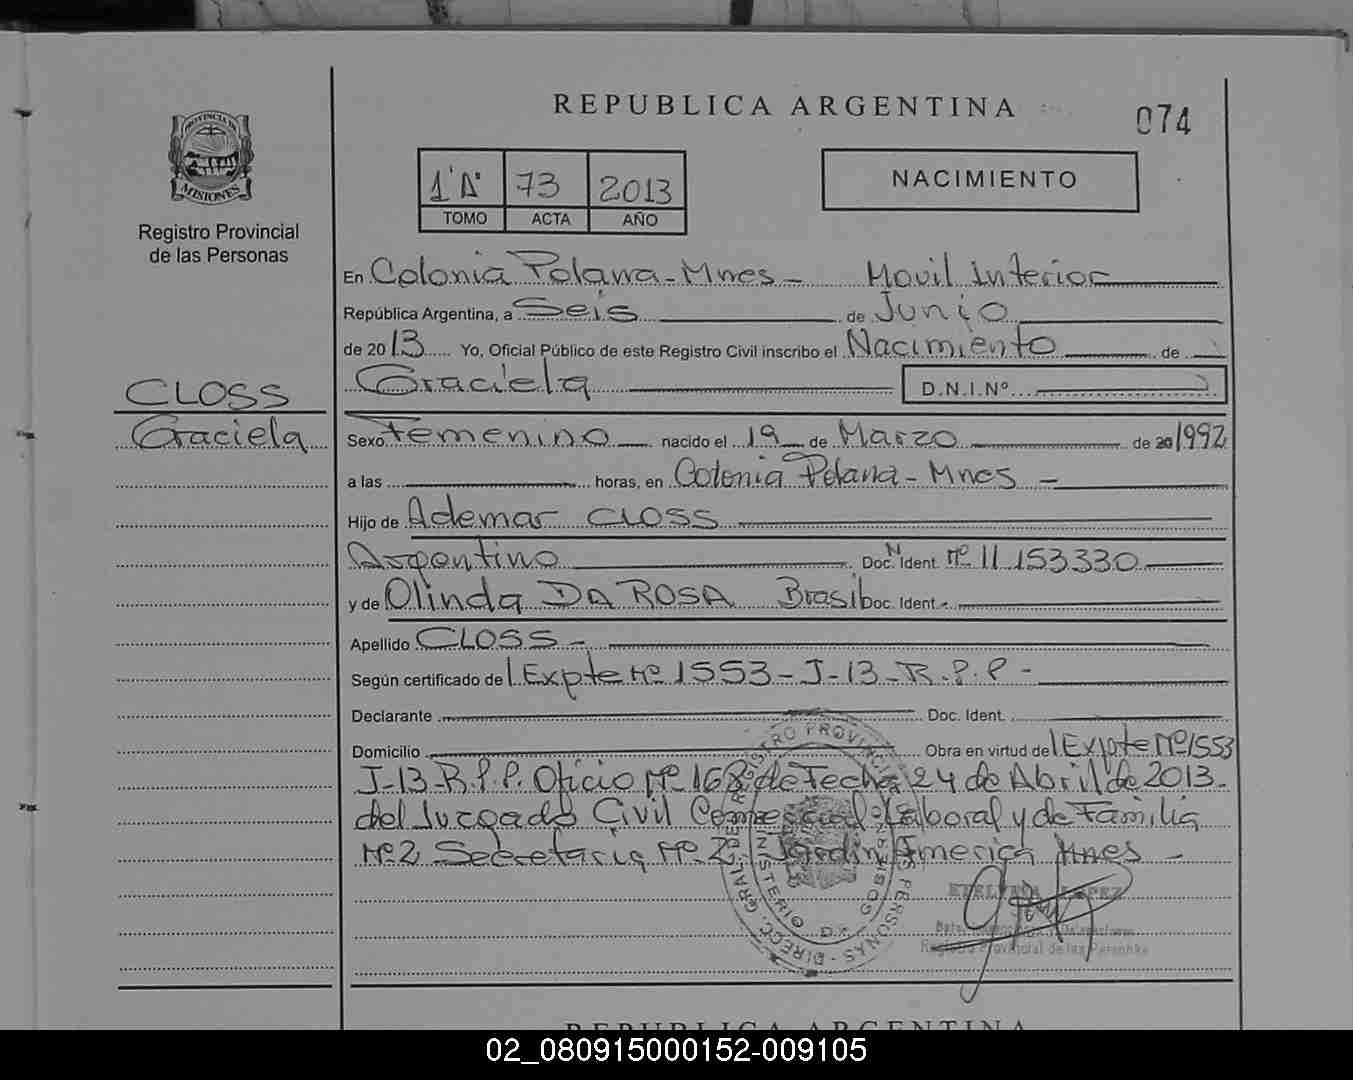 REPUBLICA ARGENTINA
074
PROVINCIA DE
MISIONES
Registro Provincial
de las Personas
1'"A" 73 2013
TOMO ACTA AÑO
NACIMIENTO
En Colonia Polana - Mnes - Movil Interior
República Argentina, a Seis de Junio
de 2013 Yo, Oficial Público de este Registro Civil inscribo el Nacimiento de
Graciela D.N.I.Nº
CLOSS
Graciela
Sexo Femenino nacido el 19 de Marzo de 20 1992
a las horas, en Colonia Polana - Mnes -
Hijo de Ademar CLOSS
Argentino Doc. Ident. Nº 11.153.330
y de Olinda DA ROSA Brasil Doc. Ident.
Apellido CLOSS -
Según certificado de Expte Nº 1553-J-13-R.P.P -
Declarante Doc. Ident.
Domicilio Obra en virtud del Expte Nº 1553
J-13-R.P.P. Oficio Nº 168 de Fecha 24 de Abril de 2013.
del Juzgado Civil Comercial Laboral y de Familia
Nº 2 Secretaria Nº 2 Jardin America Mnes -
DIRECC. GRAL. DE REGISTRO PROVINCIAL DE LAS PERSONAS
MINISTERIO DE GOBIERNO
LOPEZ
Registro Provincial de las Personas
REPUBLICA ARGENTINA
02_080915000152-009105